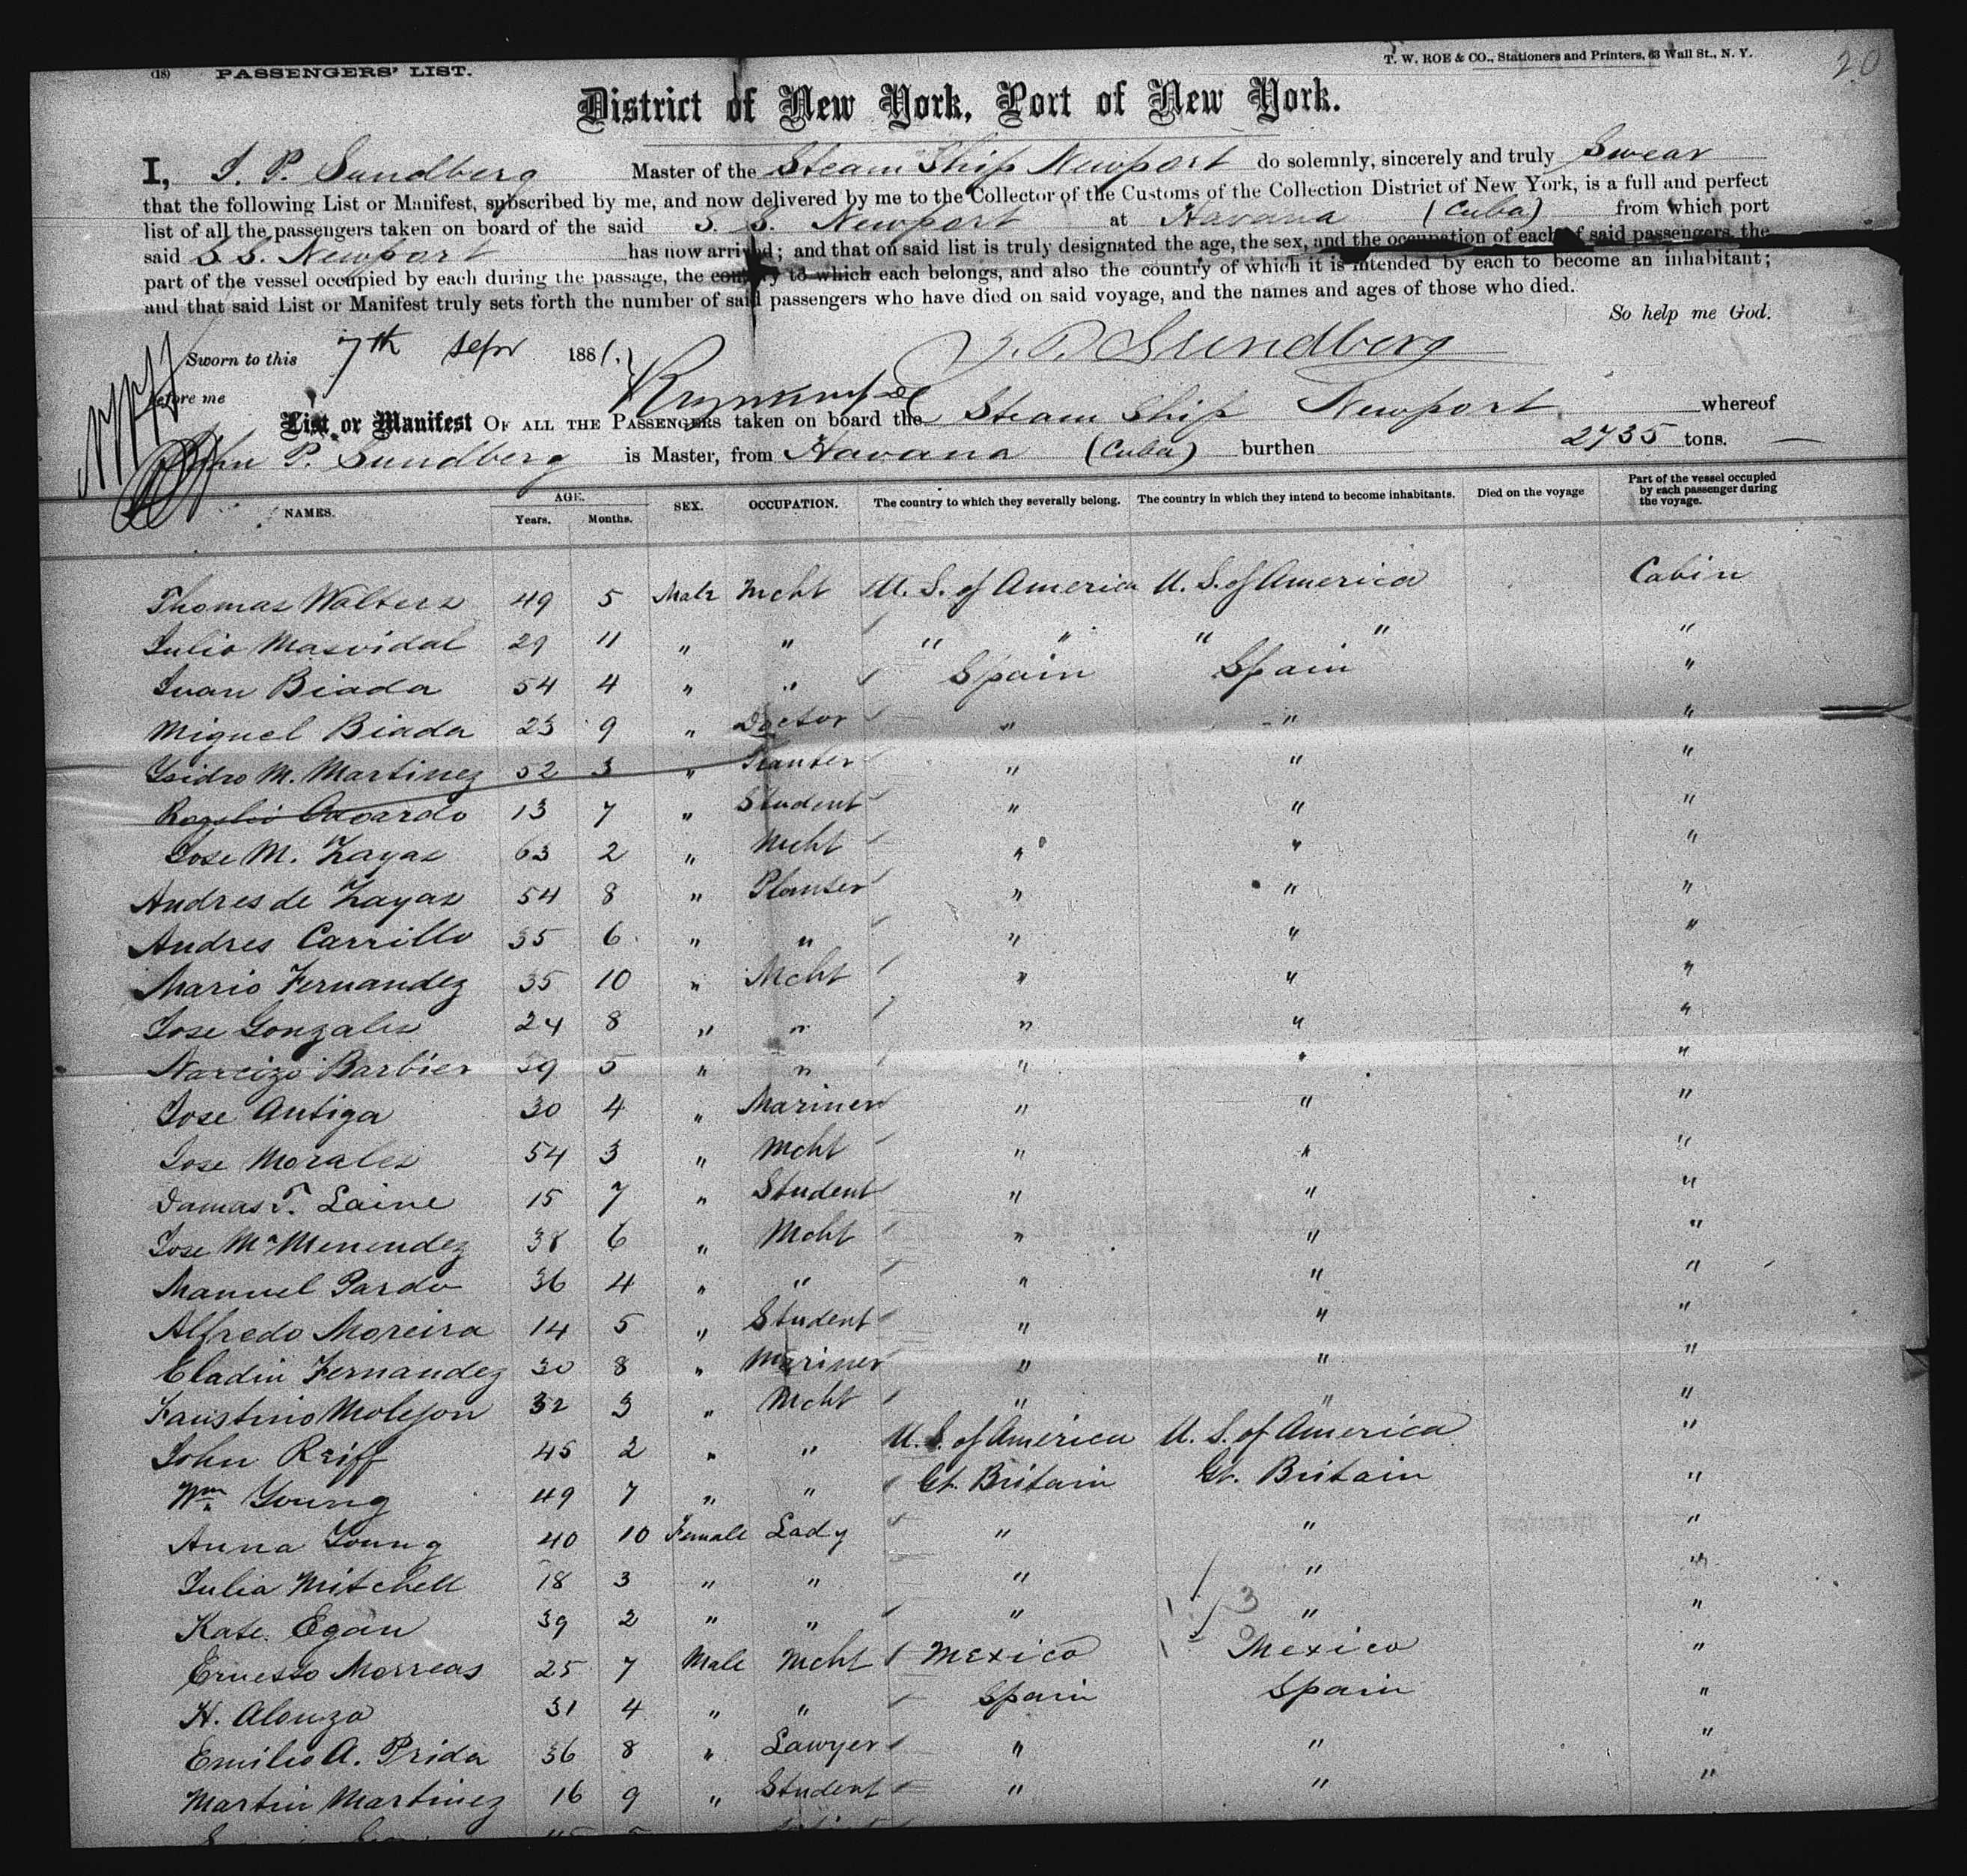 (18) PASSENGERS' LIST. T. W. ROE & CO., Stationers and Printers, 63 Wall St., N. Y. 20
District of New York, Port of New York.
I, J. P. Sundberg Master of the Steam Ship Newport do solemnly, sincerely and truly Swear
that the following List or Manifest, subscribed by me, and now delivered by me to the Collector of the Customs of the Collection District of New York, is a full and perfect
list of all the passengers taken on board of the said S. S. Newport at Havana (Cuba) from which port
said S. S. Newport has now arrived; and that on said list is truly designated the age, the sex, and the occupation of each of said passengers, the
part of the vessel occupied by each during the passage, the country to which each belongs, and also the country of which it is intended by each to become an inhabitant;
and that said List or Manifest truly sets forth the number of said passengers who have died on said voyage, and the names and ages of those who died.
So help me God.
Sworn to this 7th Sepr 1881. J. P. Sundberg
before me
List or Manifest OF ALL THE PASSENGERS taken on board the Steam Ship Newport whereof
John P. Sundberg is Master, from Havana (Cuba) burthen 2735 tons.
NAMES. AGE. Years. Months. SEX. OCCUPATION. The country to which they severally belong. The country in which they intend to become inhabitants. Died on the voyage Part of the vessel occupied by each passenger during the voyage.
Thomas Walters 49 5 Male Mcht U. S. of America U. S. of America Cabin
Julio Masvidal 29 11 " " " " " " "
Juan Biada 54 4 " " Spain Spain "
Miguel Biada 23 9 " Doctor " " "
Isidro M. Martinez 52 3 " Planter " " "
13 7 " Student " " "
Jose M. Zayas 63 2 " Mcht " " "
Andres de Zayas 54 8 " Planter " " "
Andres Carrillo 35 6 " " " " "
Mario Fernandez 35 10 " Mcht " " "
Jose Gonzales 24 8 " " " " "
Narcizo Barbier 59 5 " " " " "
Jose Antiga 30 4 " Mariner " " "
Jose Morales 54 3 " Mcht " " "
Damas T. Laine 15 7 " Student " " "
Jose Ma Menendez 38 6 " Mcht " " "
Manuel Pardo 36 4 " " " " "
Alfredo Moreira 14 5 " Student " " "
Eladin Fernandez 30 8 " Mariner " " "
Faustino Molejon 32 3 " Mcht " " "
John Reiff 45 2 " " U. S. of America U. S. of America "
Wm Young 49 7 " " Gt. Britain Gt. Britain "
Anna Young 40 10 Female Lady " " "
Julia Mitchell 18 3 " " " " "
Kate Egan 39 2 " " " " "
Ernesto Morreas 25 7 Male Mcht Mexico Mexico "
H. Alonzo 31 4 " " Spain Spain "
Emilio A. Prida 36 8 " Lawyer " " "
Martin Martinez 16 9 " Student " " "